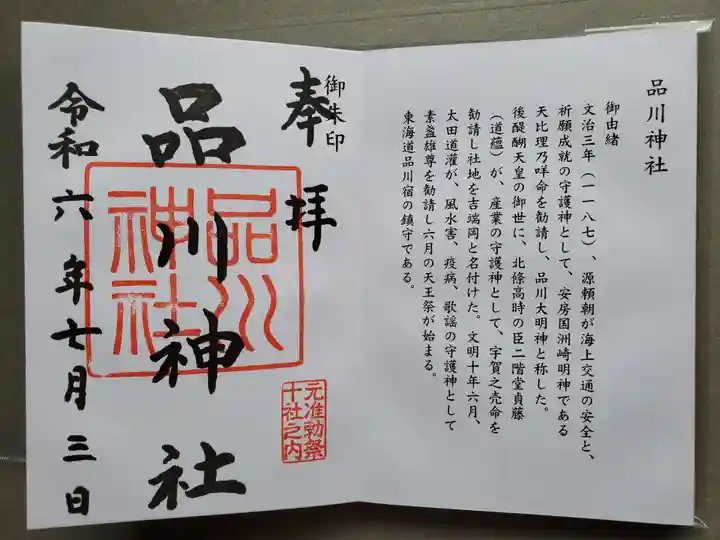 品川神社
御由緒
文治三年（一一八七）、源頼朝が海上交通の安全と、
祈願成就の守護神として、安房国洲崎明神である
天比理乃咩命を勧請し、品川大明神と称した。
後醍醐天皇の御世に、北條高時の臣二階堂貞藤
（道蘊）が、産業の守護神として、宇賀之売命を
勧請し社地を吉端岡と名付けた。文明十年六月、
太田道灌が、風水害、疫病、歌謡の守護神として
素盞雄尊を勧請し六月の天王祭が始まる。
東海道品川宿の鎮守である。
御朱印
奉拝
品川神社
令和六年七月三日
品川
神社
元准勅祭
十社之内